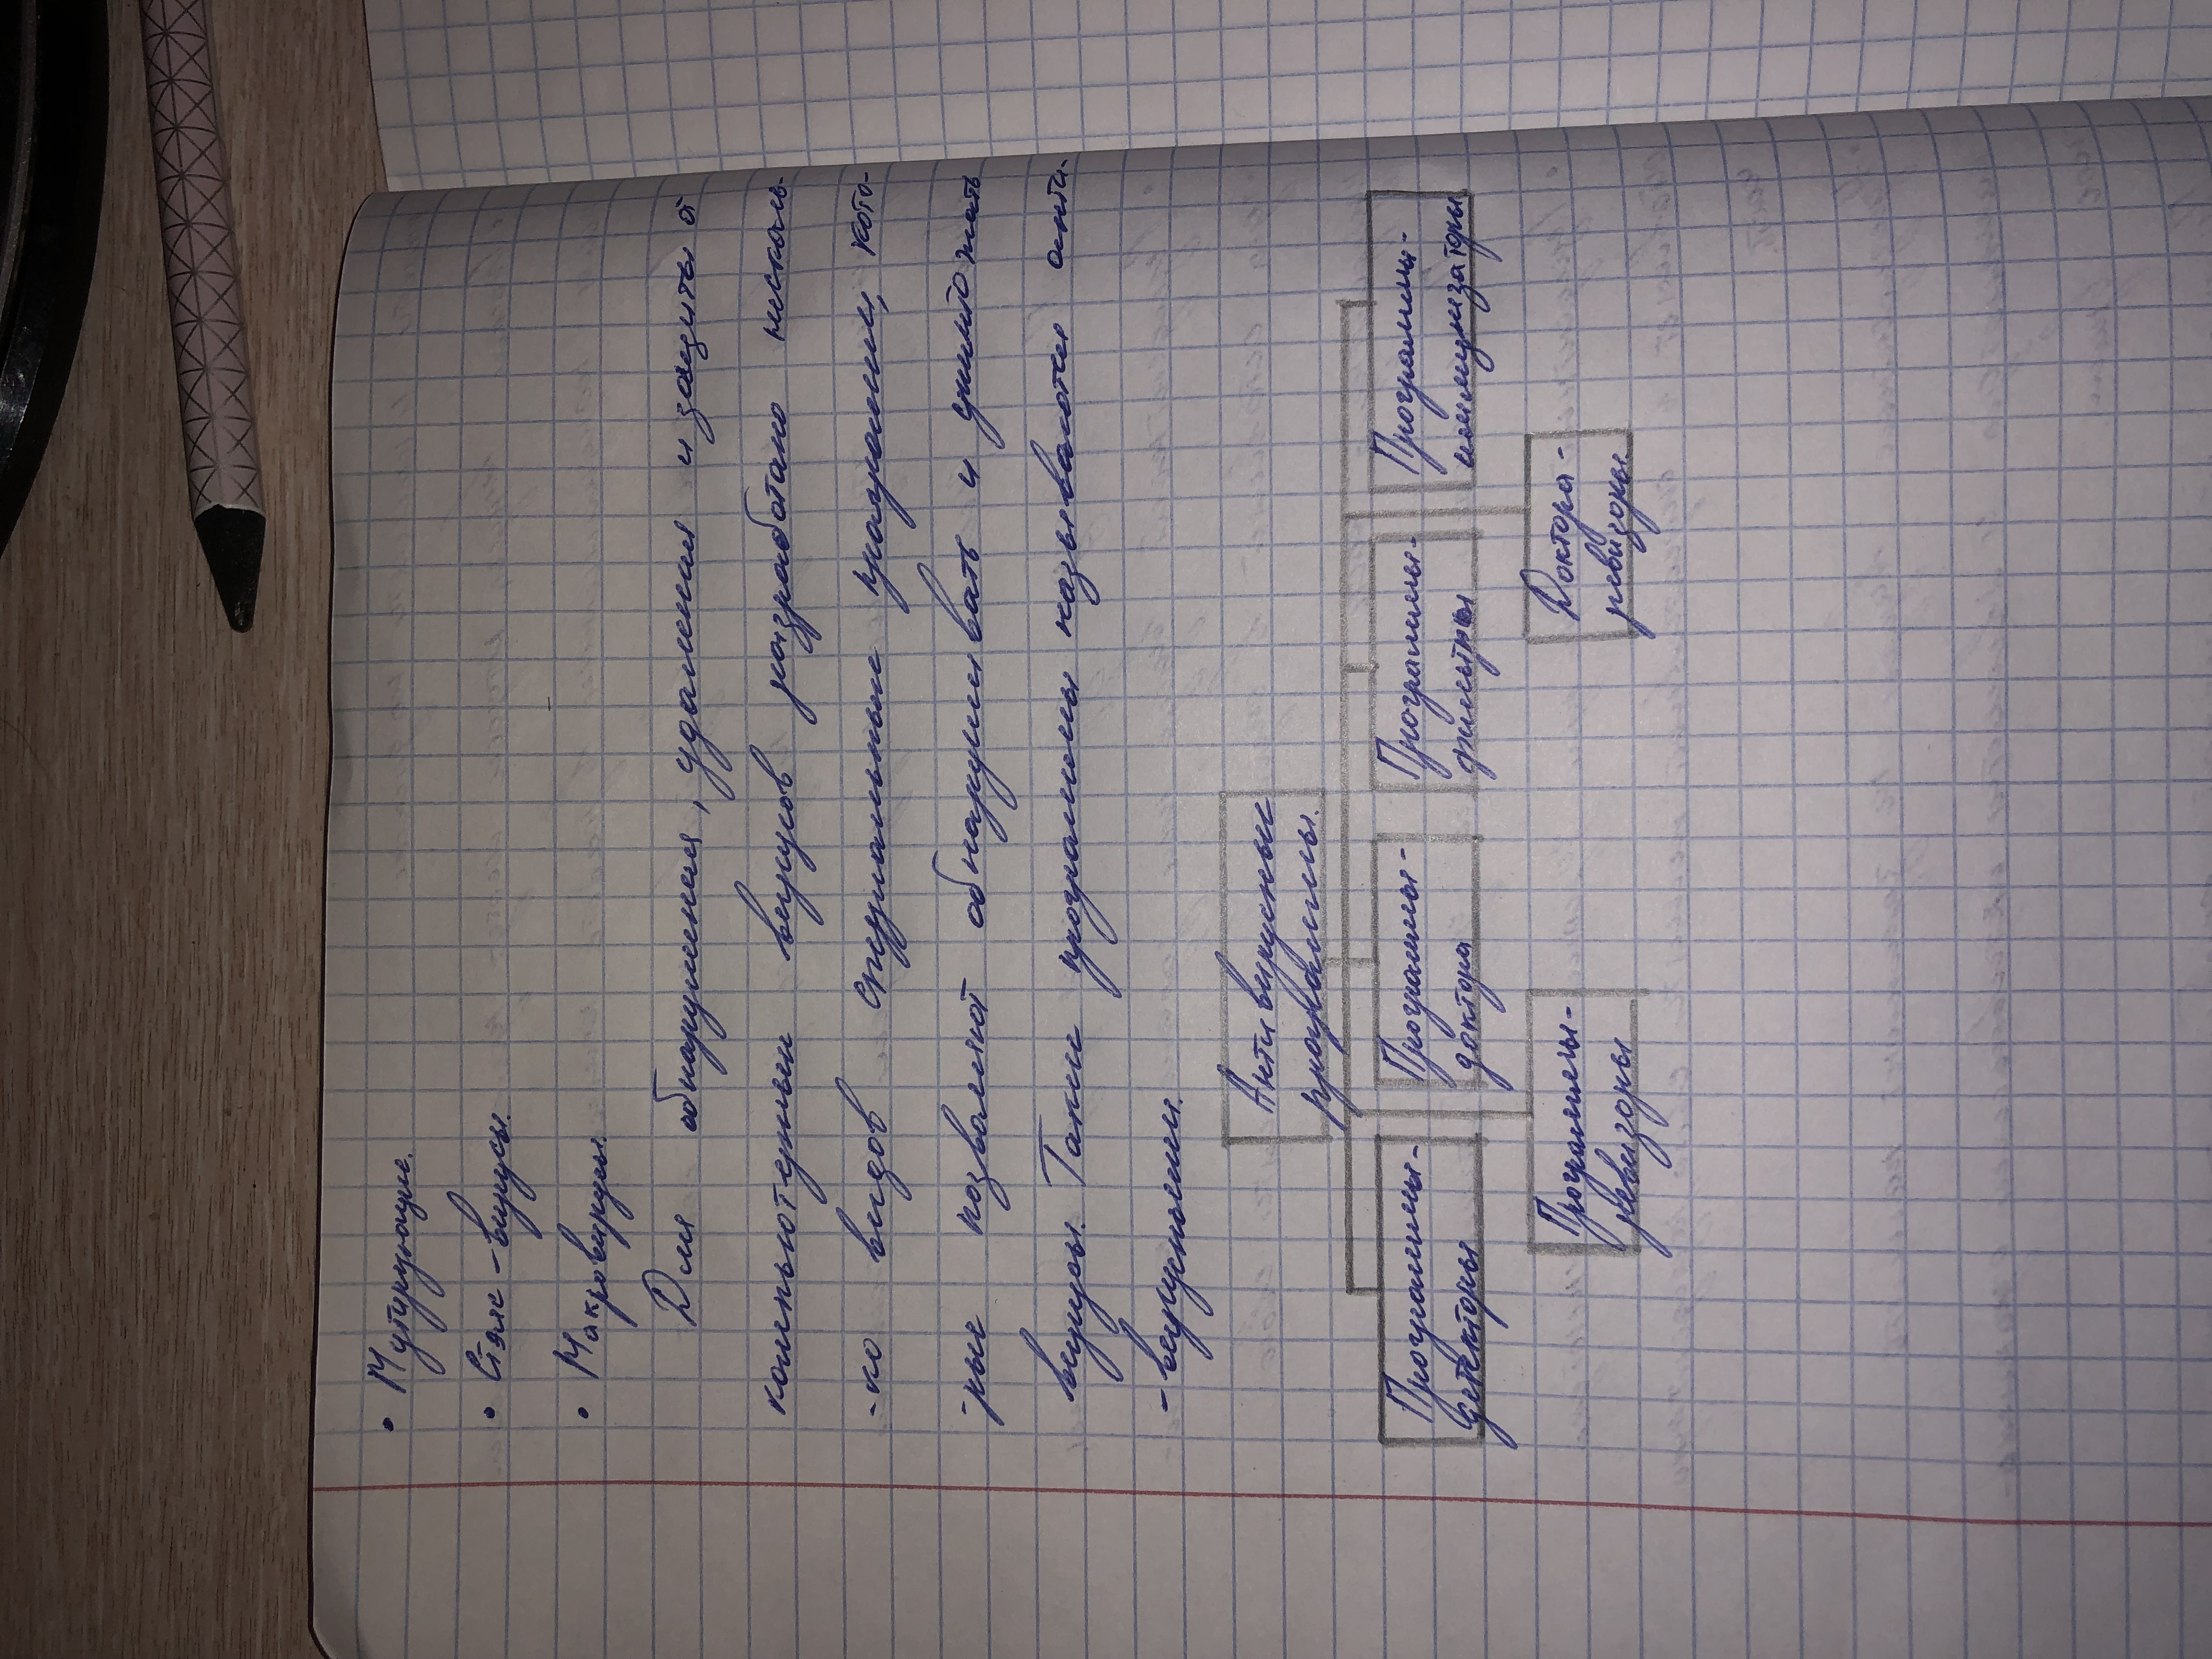 • Мутирующие.
• Стелс-вирусы.
• Макровирусы.
Для обнаружения, удаления и защиты от
компьютерных вирусов разработано несколь-
-ко видов специальных программ, кото-
-рые позволяют обнаруживать и уничтожать
вирусы. Такие программы называются анти-
-вирусными.
Антивирусные
программы.
Программы-
детекторы
Программы-
доктора
Программы-
фильтры
Программы-
иммунизаторы
Программы-
ревизоры
Доктора-
ревизоры.